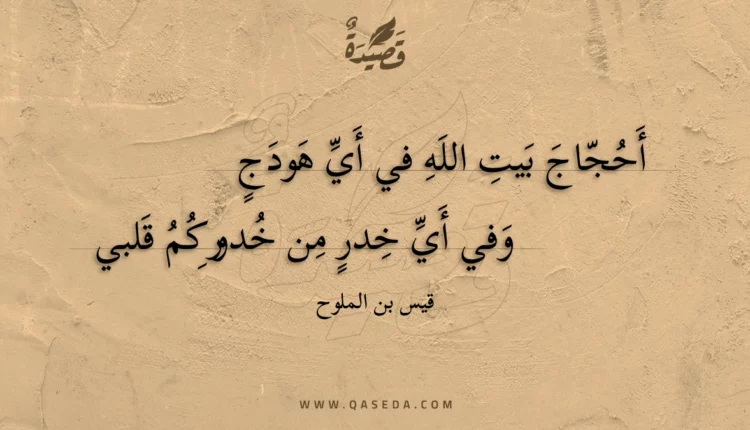 قَصِيدَةٌ
أَحُجّاجَ بَيتِ اللَهِ في أَيِّ هَودَجٍ
وَفي أَيِّ خِدرٍ مِن خُدورِكُمُ قَلبي
قيس بن الملوح
WWW.QASEDA.COM